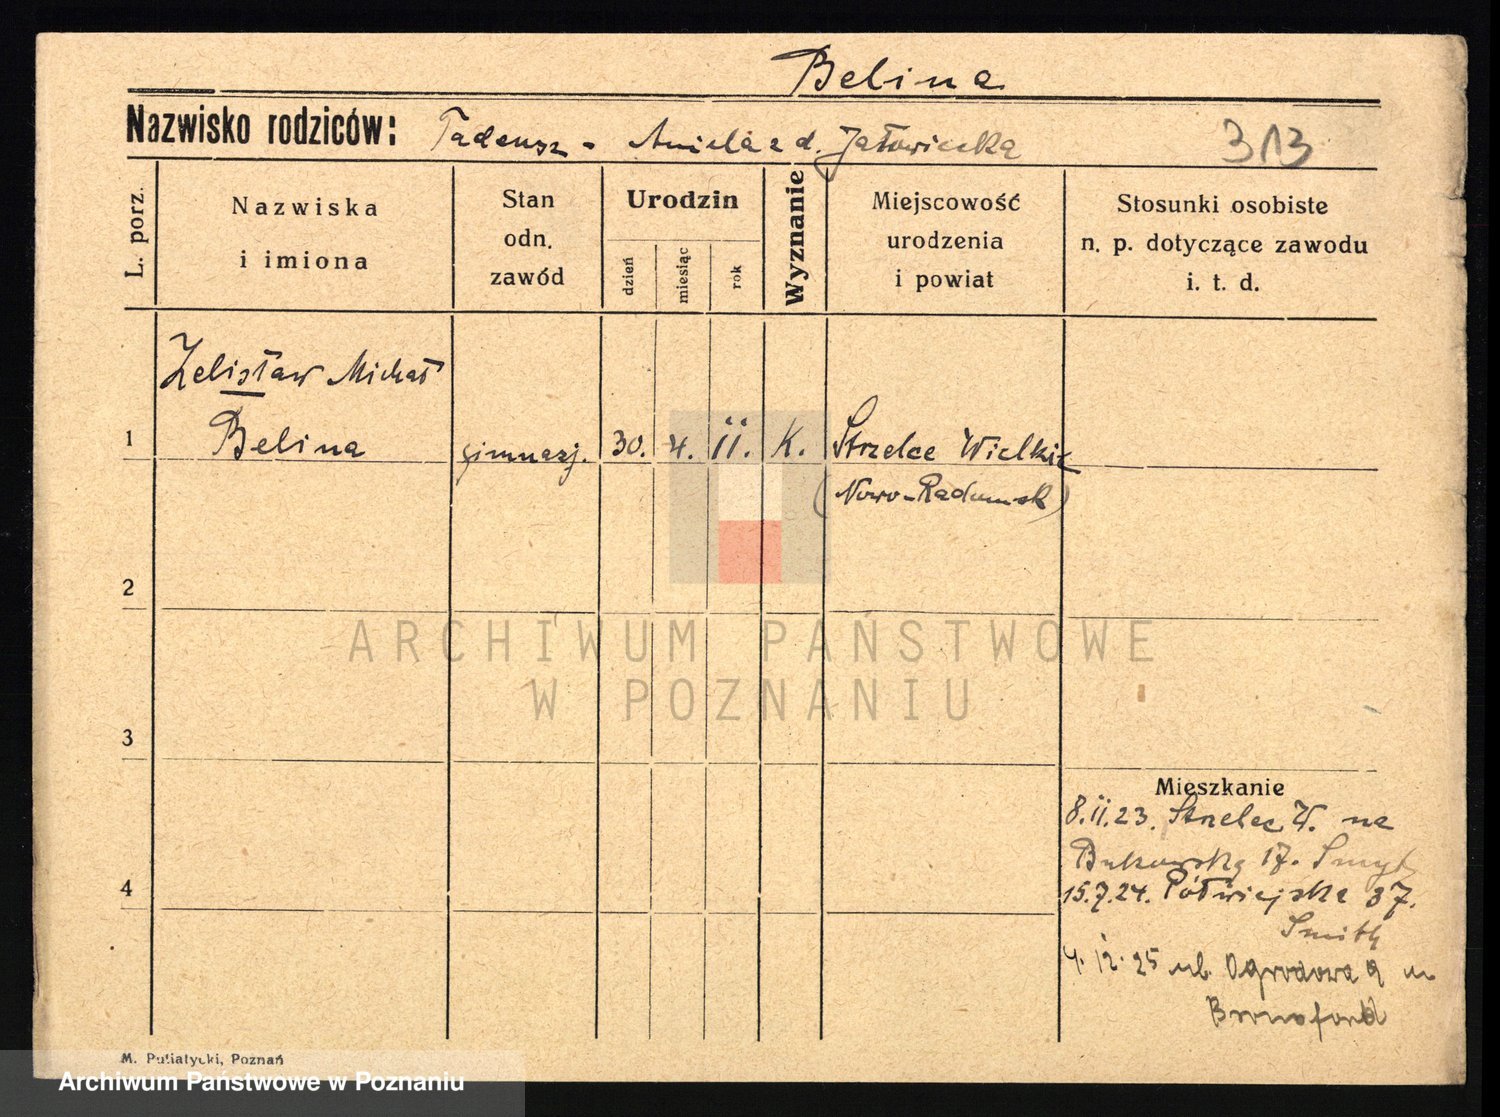 Belina
Nazwisko rodziców: Tadeusz - Aniela z d. Jałowiecka 313
L. porz.
Nazwiska
i imiona
Stan
odn.
zawód
Urodzin
dzień
miesiąc
rok
Wyznanie
Miejscowość
urodzenia
i powiat
Stosunki osobiste
n. p. dotyczące zawodu
i. t. d.
Zelisław Michał
1 Belina gimnazj. 30. 4. 11. K. Strzelce Wielkie
(Nowo-Radomsk)
2
ARCHIWUM PAŃSTWOWE
W POZNANIU
3
Mieszkanie
8.11.23. Strzelce W. na
Bukowską 17.
4
15.7.24. Półwiejska 37.
4.12.25 ul. Ogrodowa 9 m
M. Putiatycki, Poznań
Archiwum Państwowe w Poznaniu